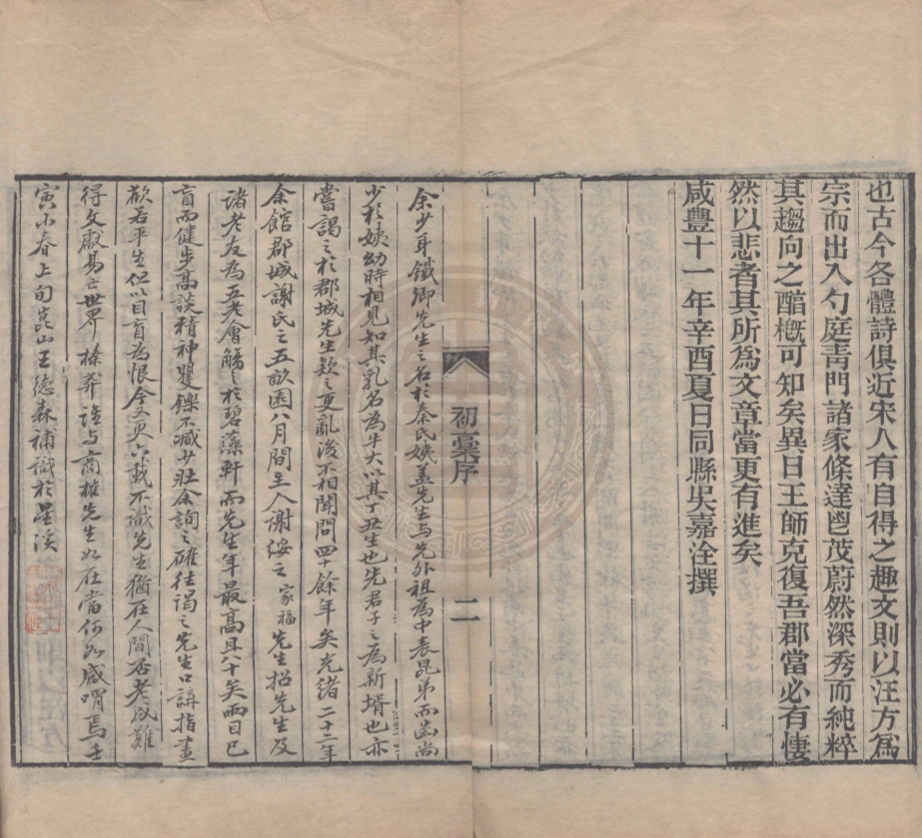 也古今各體詩俱近宋人有自得之趣文則以汪方爲
宗而出入勺庭靑門諸家條達鬯茂蔚然深秀而純粹
其趨向之醕槪可知矣異日王師克復吾郡當必有悽
然以悲者其所爲文章當更有進矣
咸豐十一年辛酉夏日同縣吳嘉洤撰
初稾序
二
余少耳鐵卿先生之名於秦氏姨盖先生与先外祖為中表昆弟而齒尚
少於姨幼時相見知其乳名為牛大以其丁丑生也先君子之為新壻也亦
嘗謁之於郡城先生欵之更亂後不相聞問四十餘年矣光緒二十二年
余館郡城謝氏之五畝園八月間主人謝綏之家福先生招先生及
諸老友為五老會觴之於碧藻軒而先生年最高且八十矣兩目已
盲而健步高談精神矍鑠不减少壯余詢之確往謁之先生口講指畫
歘若平生但以目盲為恨今又更六載不識先生猶在人間否老成難
得文獻易亡世界榛莽誰与商榷先生如在當何如感喟焉壬
寅小春上旬崑山王德森補識於星溪